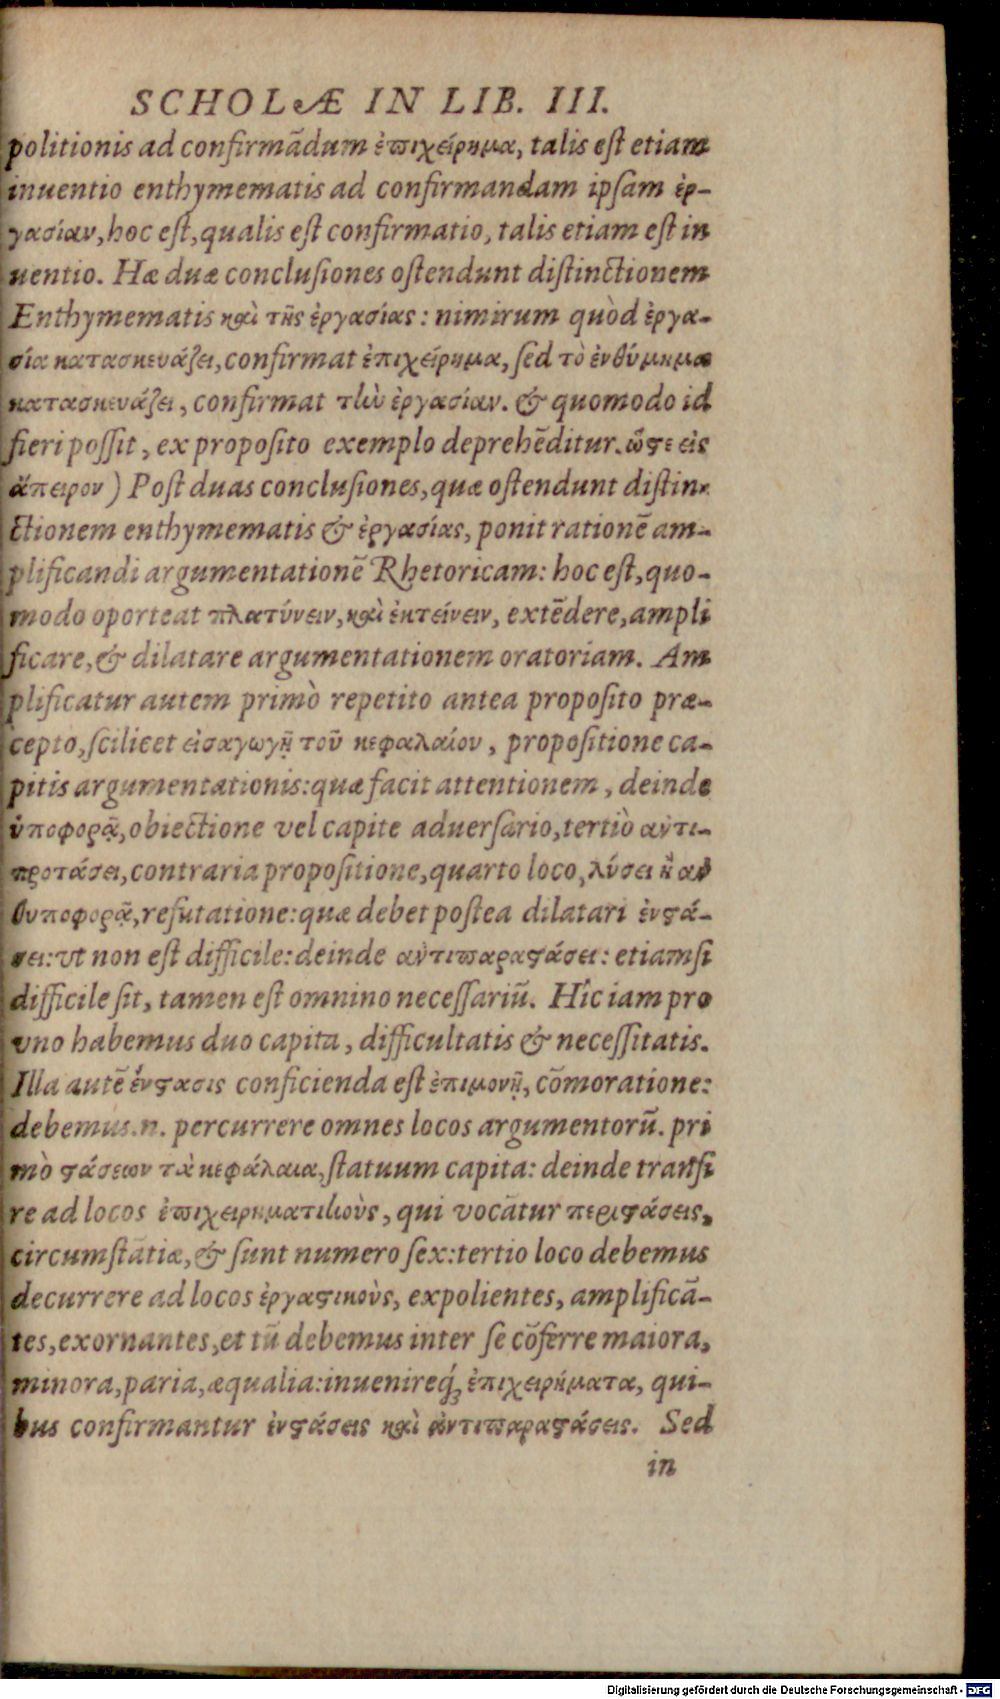 SCHOLÆ IN LIB. III.
politionis ad confirmãdum ἐπιχείρημα, talis eſt etiam
inuentio enthymematis ad confirmandam ipſam ἐρ-
γασίαν, hoc eſt, qualis eſt confirmatio, talis etiam eſt in
uentio. Hæ duæ concluſiones oſtendunt diſtinctionem
Enthymematis καὶ τῆς ἐργασίας: nimirum quòd ἐργα-
σία κατασκευάζει, confirmat ἐπιχείρημα, ſed τὸ ἐνθύμημα
κατασκευάζει, confirmat τὴν ἐργασίαν. & quomodo id
fieri poſſit, ex propoſito exemplo deprehẽditur. ὥστε εἰς
ἄπειρον) Poſt duas concluſiones, quæ oſtendunt diſtin-
ctionem enthymematis & ἐργασίας, ponit rationẽ am-
plificandi argumentationẽ Rhetoricam: hoc eſt, quo-
modo oporteat πλατύνειν, καὶ ἐκτείνειν, extẽdere, ampli
ficare, & dilatare argumentationem oratoriam. Am
plificatur autem primò repetito antea propoſito præ-
cepto, ſcilicet εἰσαγωγῇ τοῦ κεφαλαίου, propoſitione ca-
pitis argumentationis: quæ facit attentionem, deinde
ὑποφορᾷ, obiectione vel capite aduerſario, tertiò ἀντι-
προτάσει, contraria propoſitione, quarto loco, λύσει ἢ ἀν
θυποφορᾷ, refutatione: quæ debet poſtea dilatari ἐνστά-
σει: vt non eſt difficile: deinde ἀντιπαραστάσει: etiamſi
difficile ſit, tamen eſt omnino neceſſariũ. Hîc iam pro
vno habemus duo capita, difficultatis & neceſſitatis.
Illa autẽ ἔνστασις conficienda eſt ἐπιμονῇ, cõmoratione:
debemus.n. percurrere omnes locos argumentorũ. pri
mò στάσεων τὰ κεφάλαια, ſtatuum capita: deinde tranſi
re ad locos ἐπιχειρηματικοὺς, qui vocãtur περιστάσεις,
circumſtãtiæ, & ſunt numero ſex: tertio loco debemus
decurrere ad locos ἐργαστικοὺς, expolientes, amplificã-
tes, exornantes, et tũ debemus inter ſe cõferre maiora,
minora, paria, æqualia: inuenireq́; ἐπιχειρήματα, qui-
bus confirmantur ἐνστάσεις καὶ ἀντιπαραστάσεις. Sed
in
Digitalisierung gefördert durch die Deutsche Forschungsgemeinschaft - DFG